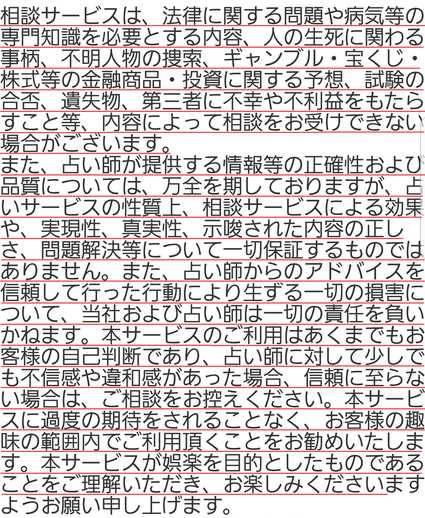 相談サービスは、法律に関する問題や病気等の
専門知識を必要とする内容、人の生死に関わる
事柄、不明人物の捜索、ギャンブル・宝くじ・
株式等の金融商品・投資に関する予想、試験の
合否、遺失物、第三者に不幸や不利益をもたら
すこと等、内容によって相談をお受けできない
場合がございます。
また、占い師が提供する情報等の正確性および
品質については、万全を期しておりますが、占
いサービスの性質上、相談サービスによる効果
や、実現性、真実性、示唆された内容の正し
さ、問題解決等について一切保証するものでは
ありません。また、占い師からのアドバイスを
信頼して行った行動により生ずる一切の損害に
ついて、当社および占い師は一切の責任を負い
かねます。本サービスのご利用はあくまでもお
客様の自己判断であり、占い師に対して少しで
も不信感や違和感があった場合、信頼に至らな
い場合は、ご相談をお控えください。本サービ
スに過度の期待をされることなく、お客様の趣
味の範囲内でご利用頂くことをお勧めいたしま
す。本サービスが娯楽を目的としたものである
ことをご理解いただき、お楽しみくださいます
ようお願い申し上げます。